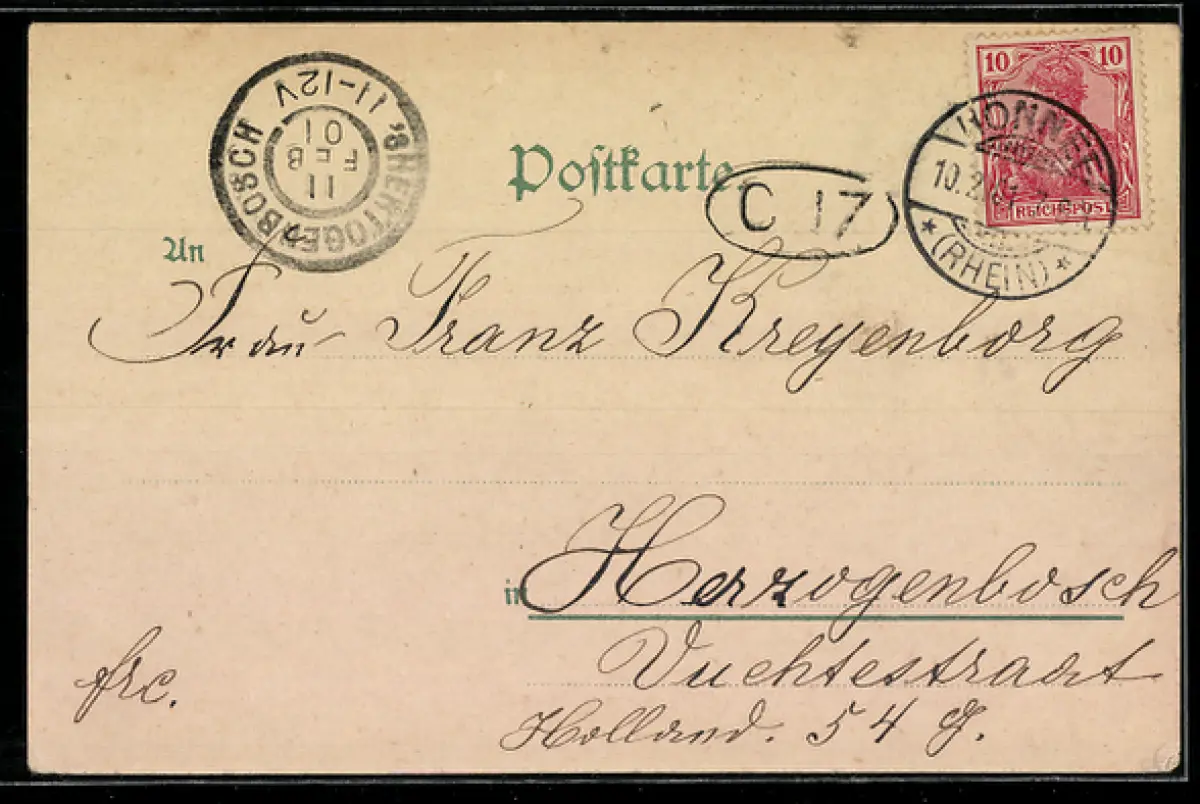 10 10
REICHSPOST
HONNEF
10.2.01
* (RHEIN) *
'SHERTOGENBOSCH
11-12V
11
FEB
01
Postkarte.
C 17
An
Frau Franz Kreyenborg
in Herzogenbosch
Vuchtestraat
Holland. 54 G.
frc.